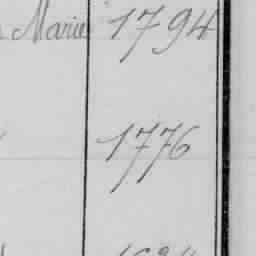 Marie 1794
1776